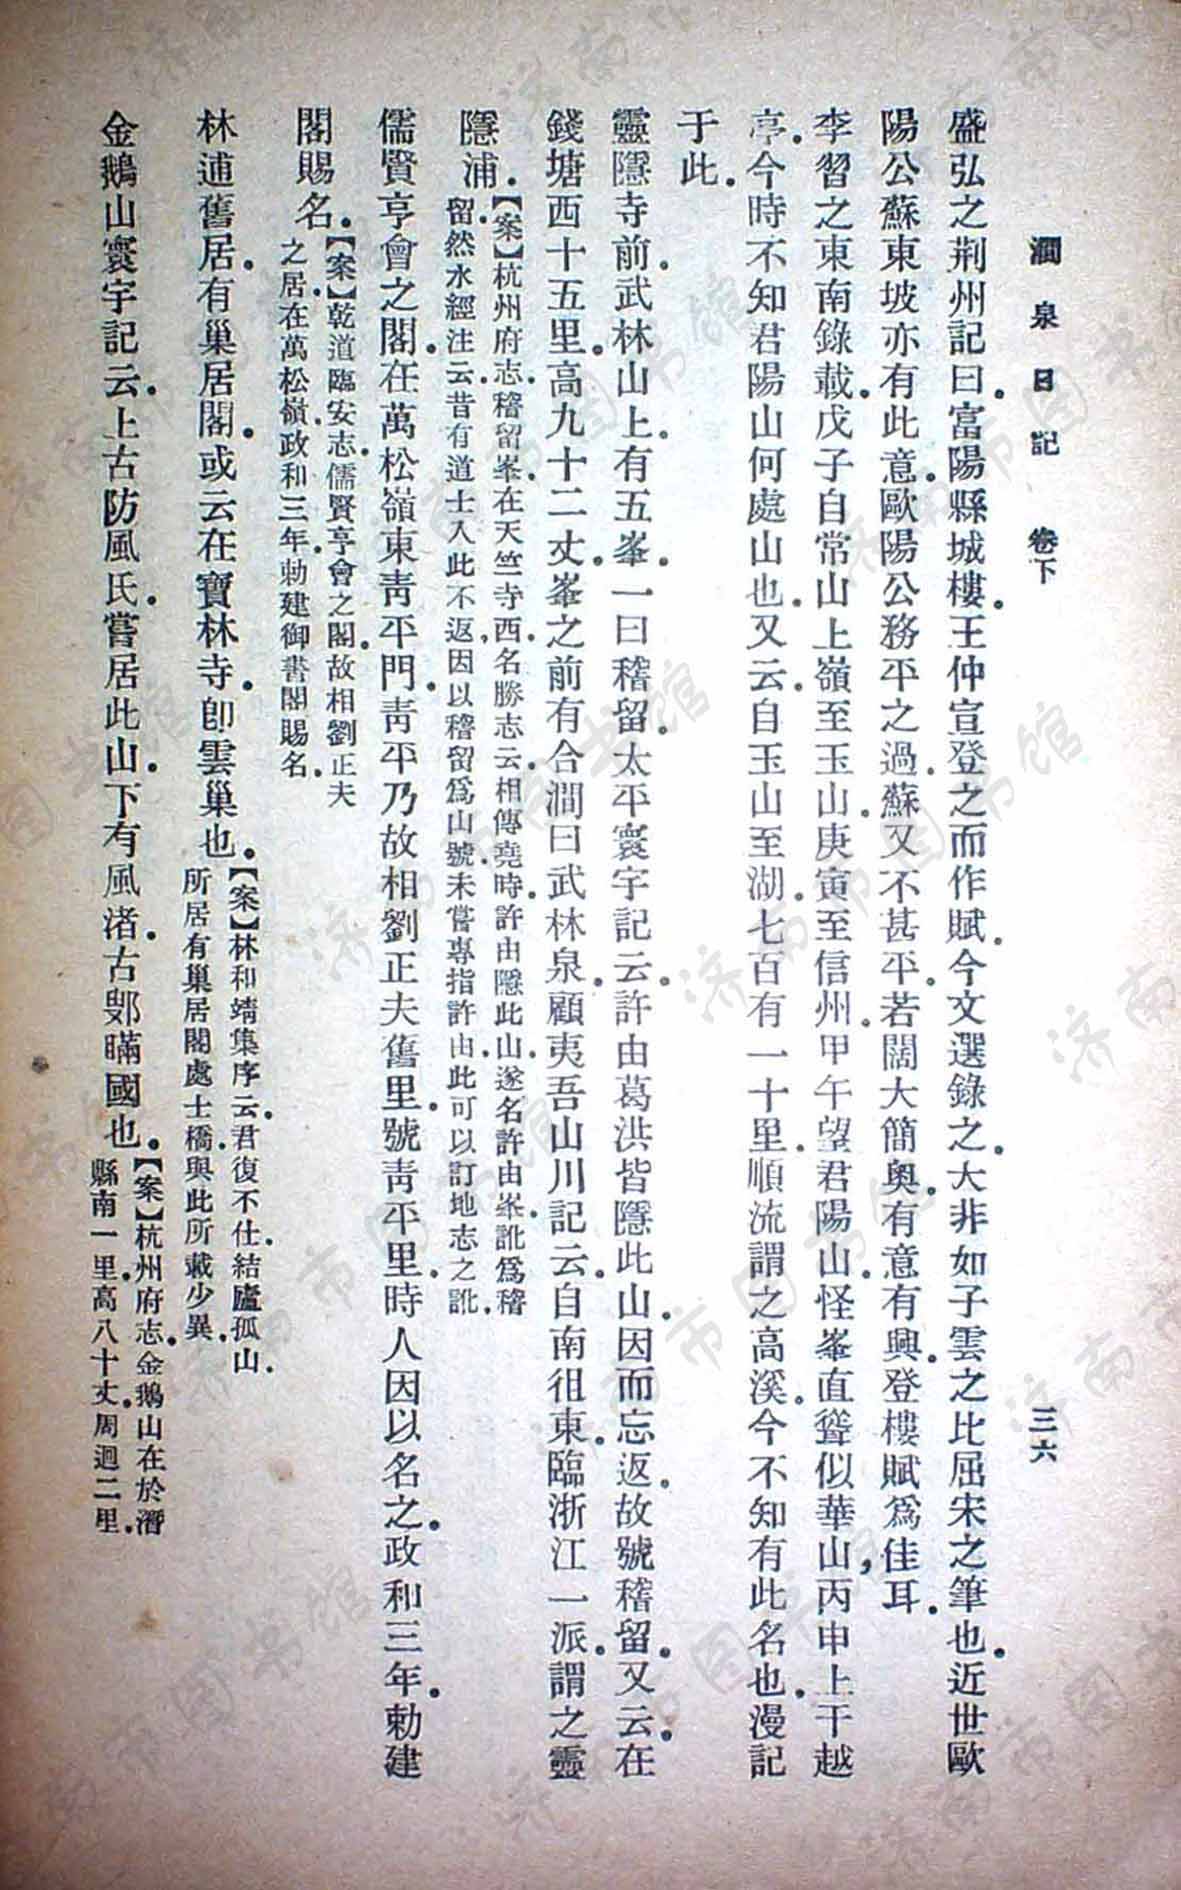 澗泉日記　卷下　三六
盛弘之荆州記曰．富陽縣城樓．王仲宣登之而作賦．今文選錄之．大非如子雲之比屈宋之筆也．近世歐
陽公蘇東坡亦有此意．歐陽公務平之過．蘇又不甚平．若闊大簡奧．有意有興．登樓賦爲佳耳．
李習之東南錄載．戊子自常山上嶺至玉山．庚寅至信州．甲午望君陽山．怪峯直聳似華山，丙申上干越
亭．今時不知君陽山何處山也．又云．自玉山至湖．七百有一十里．順流謂之高溪．今不知有此名也．漫記
于此．
靈隱寺前．武林山上．有五峯．一曰稽留．太平寰宇記云．許由葛洪皆隱此山．因而忘返．故號稽留．又云．在
錢塘西十五里．高九十二丈．峯之前有合澗曰武林泉．顧夷吾山川記云．自南徂東．臨浙江一派．謂之靈
隱浦．
【案】杭州府志．稽留峯．在天竺寺西．名勝志云．相傳堯時．許由隱此山．遂名許由峯．訛爲稽
留．然水經注云．昔有道士入此不返．因以稽留爲山號．未嘗專指許由．此可以訂地志之訛．
儒賢亨會之閣．在萬松嶺東靑平門．靑平乃故相劉正夫舊里．號靑平里．時人因以名之．政和三年．勅建
閣賜名．
【案】乾道臨安志．儒賢亨會之閣．故相劉正夫
之居．在萬松嶺．政和三年．勅建御書閣賜名．
林逋舊居．有巢居閣．或云在寶林寺．卽雲巢也．
【案】林和靖集序云．君復不仕．結廬孤山．
所居有巢居閣處士橋．與此所載少異．
金鵝山寰宇記云．上古防風氏．嘗居此山．下有風渚．古鄋瞞國也．
【案】杭州府志．金鵝山在於潛
縣南一里．高八十丈．周迴二里．